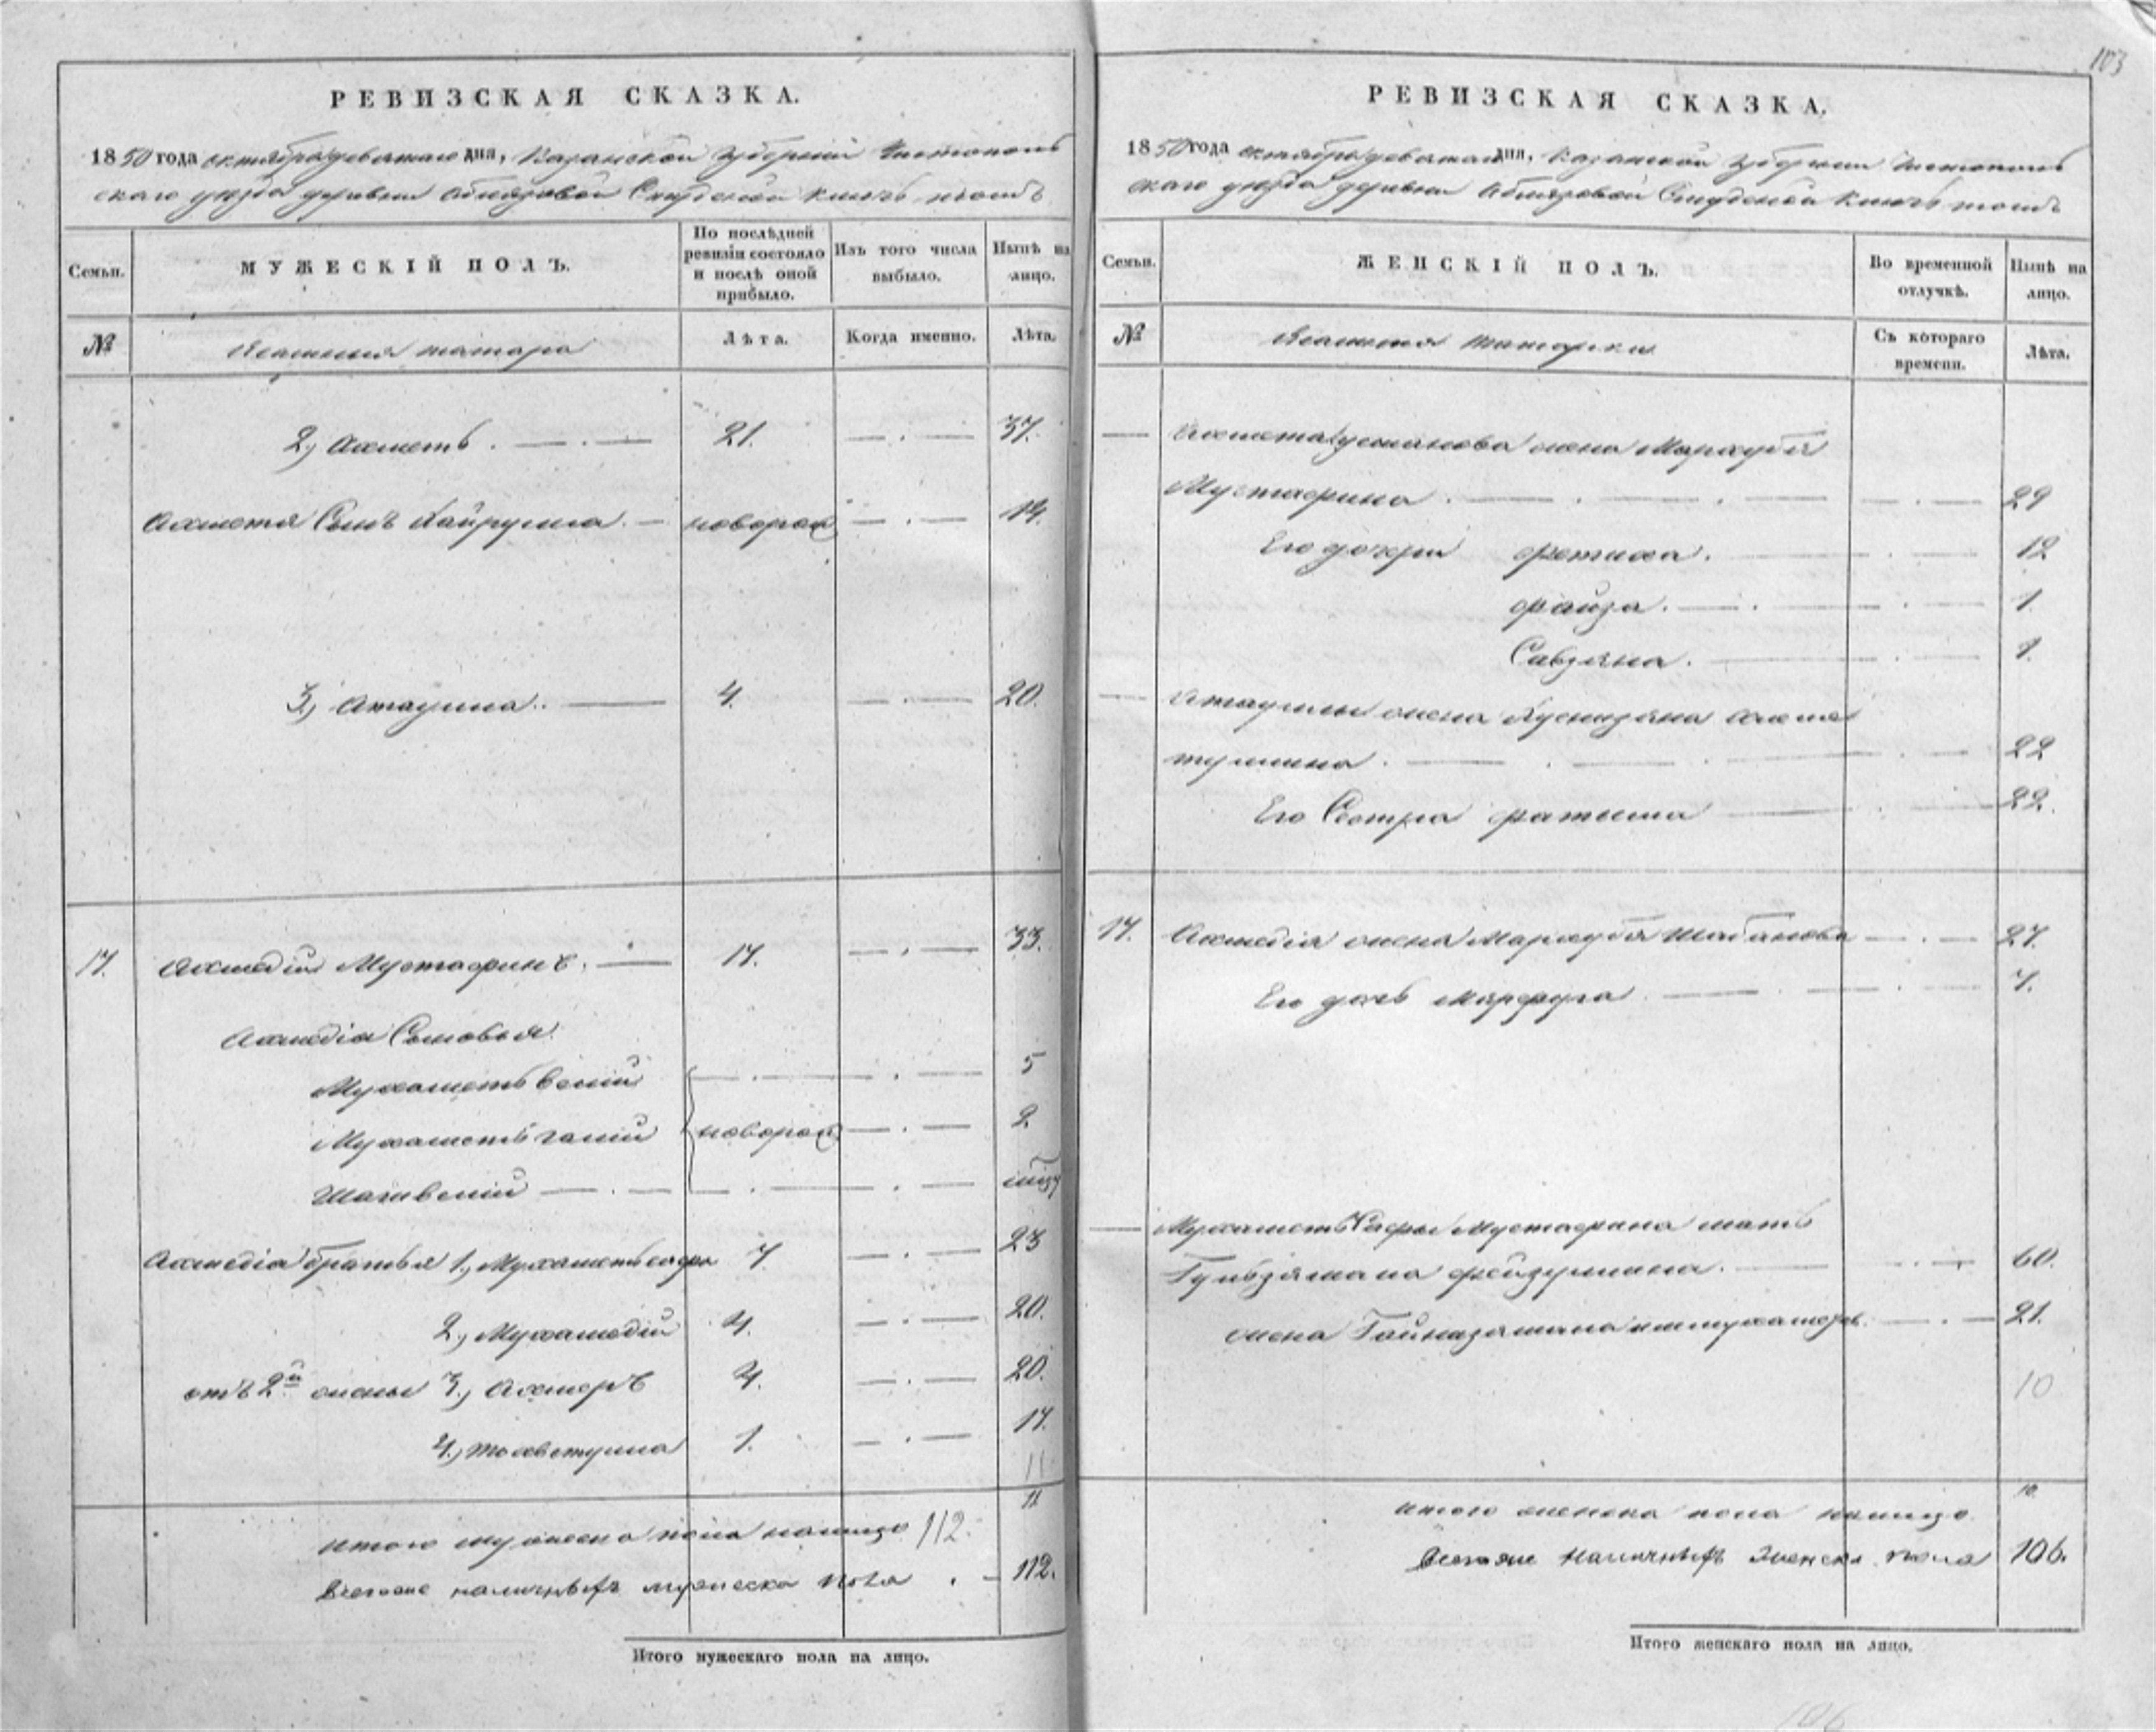 103
РЕВИЗСКАЯ СКАЗКА.
1850 года октября девятаго дня, Казанской губерніи Чистополь
скаго уѣзда деревни Аблязовой Студеной Ключъ тожъ
Семьи.
МУЖЕСКІЙ ПОЛЪ.
По послѣдней ревизіи состояло и послѣ оной прибыло.
Изъ того числа выбыло.
Нынѣ на лицо.
№
татара
Лѣта.
Когда именно.
Лѣта.
2, Ахметь. 21. 37.
Ахметя Сынъ Хайрулла. новорож 14.
3, Атаулла. 4. 20.
17. Ахмедій Мустафинъ. 17. 33.
Ахмедія Сыновья
Мухаметь велій 5
Мухаметь галій новорож 2
Шагивелій
Ахмедія братья 1, Мухаметь сафа 7. 23
2, Мухамедій 4. 20.
отъ 2й жены 3, Ахмеръ 4. 20.
4, Тохветулла 1. 17.
11
11
итого мужеска пола налицо 112.
Всегоже наличныхъ мужеска пола 112.
Итого мужескаго пола на лицо.
РЕВИЗСКАЯ СКАЗКА.
1850 года октября девятаго дня, Казанской губерніи Чистополь
скаго уѣзда деревни Аблязовой Студеной Ключъ тожъ
Семьи.
ЖЕНСКІЙ ПОЛЪ.
Во временной отлучкѣ.
Нынѣ на лицо.
№
татарки
Съ котораго времени.
Лѣта.
Ахмета Гусманова жена Мархуба
Мустафина. 29
Его дочери Фетиха. 12
Файза. 1.
Савдяна. 1.
Атауллы жена Хуснизяна Ахме
туллина. 22
Его Сестра Фатыма 22.
17. Ахмедія жена Мархуба Шабанова 27.
Его дочь Марфуга 7.
Мухаметь Сафы Мустафина мать
Гульзямана Фейзуллина. 60.
жена Гайнизямана 21.
10
10.
итого женска пола налицо
Всегоже наличныхъ женска пола 106.
Итого женскаго пола на лицо.
106